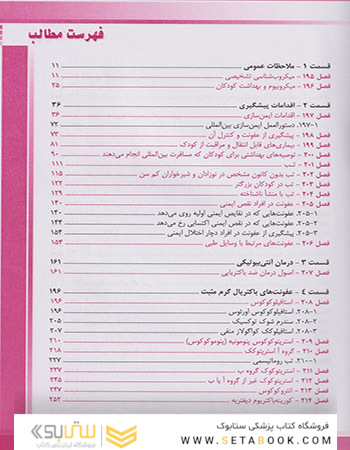 فهرست مطالب
قسمت ۱ - ملاحظات عمومی ۱۱
فصل ۱۹۵ - میکروب‌شناسی تشخیصی ۱۱
فصل ۱۹۶ - میکروبیوم و بهداشت کودکان ۲۵
قسمت ۲ - اقدامات پیشگیری ۳۶
فصل ۱۹۷ - اقدامات ایمن‌سازی ۳۶
۱۹۷-۱ دستورالعمل ایمن‌سازی بین‌المللی ۷۲
فصل ۱۹۸ - پیشگیری از عفونت و کنترل آن ۷۳
فصل ۱۹۹ - بیماری‌های قابل انتقال و مراقبت از کودک ۸۱
فصل ۲۰۰ - توصیه‌های بهداشتی برای کودکان که مسافرت بین‌المللی انجام می‌دهند ۹۰
فصل ۲۰۱ - تب ۱۱۱
فصل ۲۰۲ - تب بدون کانون مشخص در نوزادان و شیرخواران کم سن ۱۱۵
فصل ۲۰۳ - تب در کودکان بزرگتر ۱۲۲
فصل ۲۰۴ - تب با منشأ ناشناخته ۱۲۹
فصل ۲۰۵ - عفونت در افراد نقص ایمنی ۱۴۰
۲۰۵-۱ عفونت‌هایی که در نقایص ایمنی اولیه روی می‌دهد ۱۴۰
۲۰۵-۲ عفونت‌هایی که در نقص ایمنی اکتسابی رخ می‌دهد ۱۴۴
۲۰۵-۳ پیشگیری از عفونت در افراد دچار اختلال ایمنی ۱۵۴
فصل ۲۰۶ - عفونت‌های مرتبط با وسایل طبی ۱۵۴
قسمت ۳ - درمان آنتی‌بیوتیکی ۱۶۱
فصل ۲۰۷ - اصول درمان ضد باکتریایی ۱۶۱
قسمت ۴ - عفونت‌های باکتریال گرم مثبت ۱۹۶
فصل ۲۰۸ - استافیلوکوکوس ۱۹۶
۲۰۸-۱ استافیلوکوکوس اورئوس ۱۹۶
۲۰۸-۲ سندرم شوک توکسیک ۲۰۵
۲۰۸-۳ استافیلوکوک کواگولاز منفی ۲۰۷
فصل ۲۰۹ - استرپتوکوکوس پنومونیه (پنوموکوکوس) ۲۱۰
فصل ۲۱۰ - گروه آ استرپتوکک ۲۱۸
۲۱۰-۱ تب روماتیسمی ۲۲۷
فصل ۲۱۱ - استرپتوکوک گروه ب ۲۳۷
فصل ۲۱۲ - استرپتوکوک غیر از گروه آ یا ب ۲۴۵
فصل ۲۱۳ - انتروکوکوس ۲۴۷
فصل ۲۱۴ - کورینه‌باکتریوم دیفتریه ۲۵۲
فروشگاه کتاب پزشکی ستابوک
WWW.SETABOOK.COM
ستابوک
فروشگاه اینترنتی کتاب